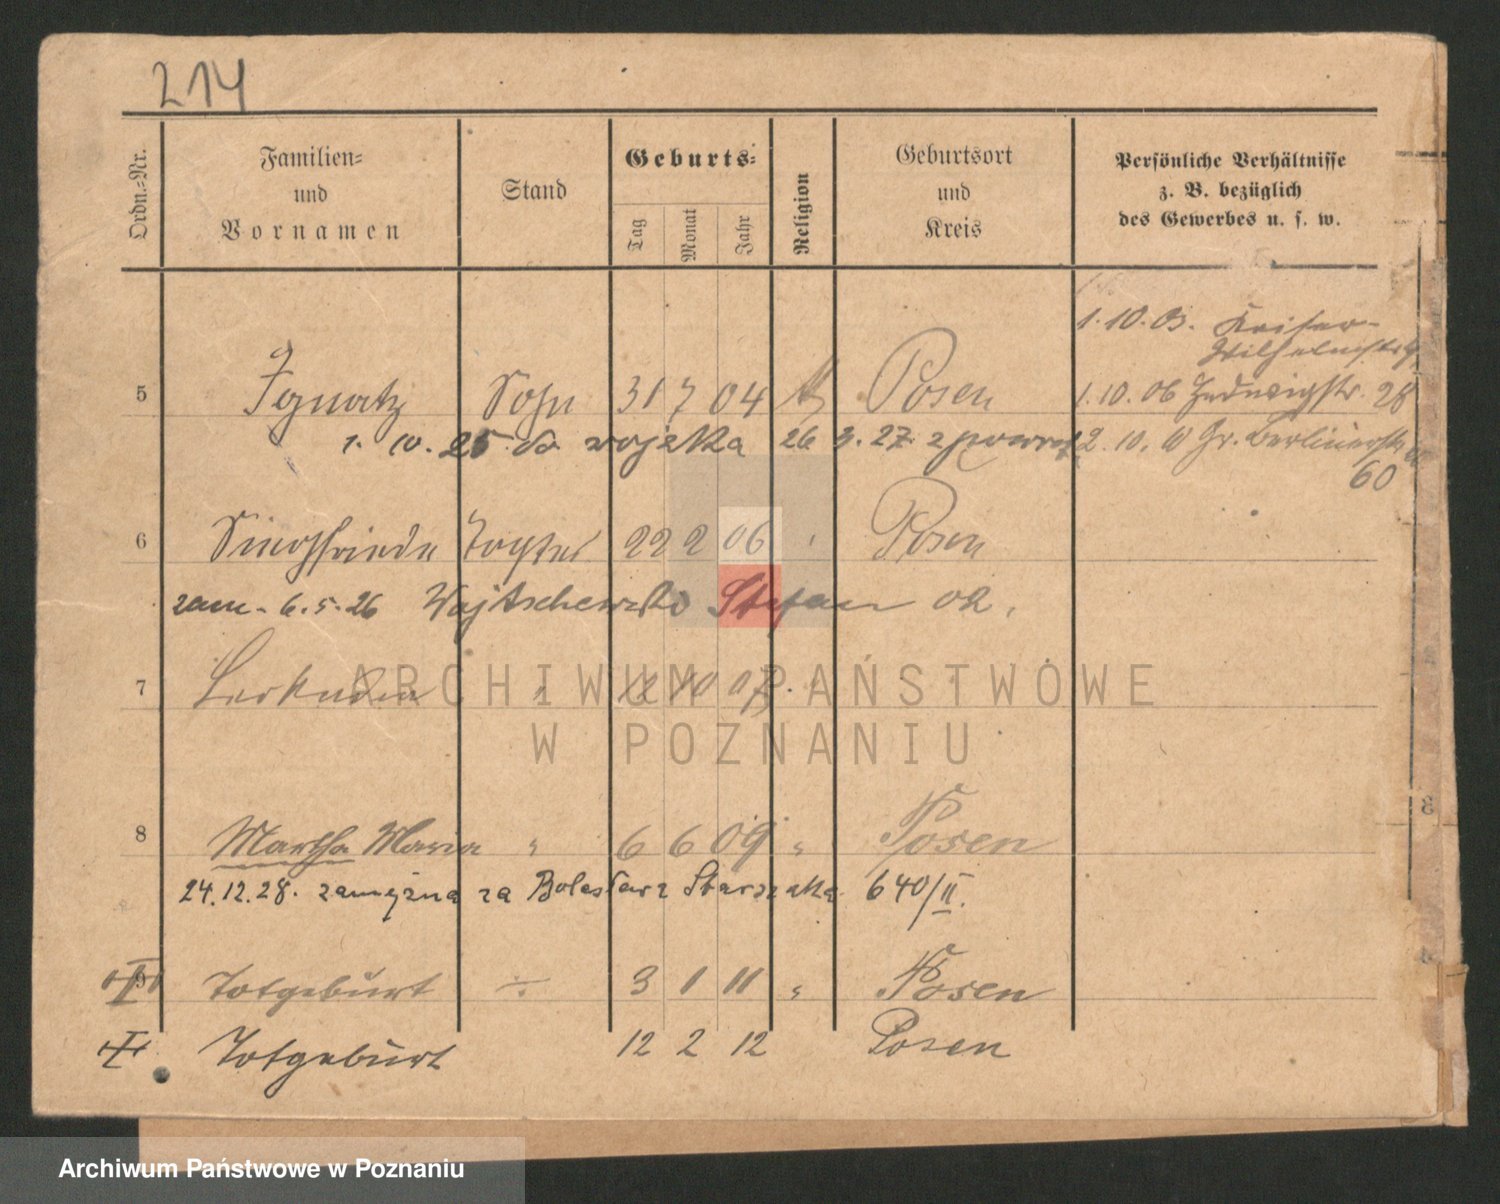 214
Ordn.=Nr.
Familien=
und
Vornamen
Stand
Geburts=
Tag
Monat
Jahr
Religion
Geburtsort
und
Kreis
Persönliche Verhältnisse
z. B. bezüglich
des Gewerbes u. s. w.
1.10.03. Kaiser-
Wilhelmstr.
5 Ignatz Sohn 31 7 04 Posen 1.10.06 Hedwigstr. 28
1. 10. 25 do wojska 26 3. 27. z powrot 2.10.10 Gr. Berlinerstr.
60
6 Tochter 22 2 06 Posen
zam. 6.5.26 Wojtschewski Stefan ok.
7 " 12 10 07
8 Martha Maria " 6 6 09 " Posen
24.12.28. zamężna za Bolesław Starszaka 640/II.
9 Totgeburt ÷ 3 1 11 " Posen
Totgeburt 12 2 12 Posen
ARCHIWUM PAŃSTWOWE
W POZNANIU
Archiwum Państwowe w Poznaniu